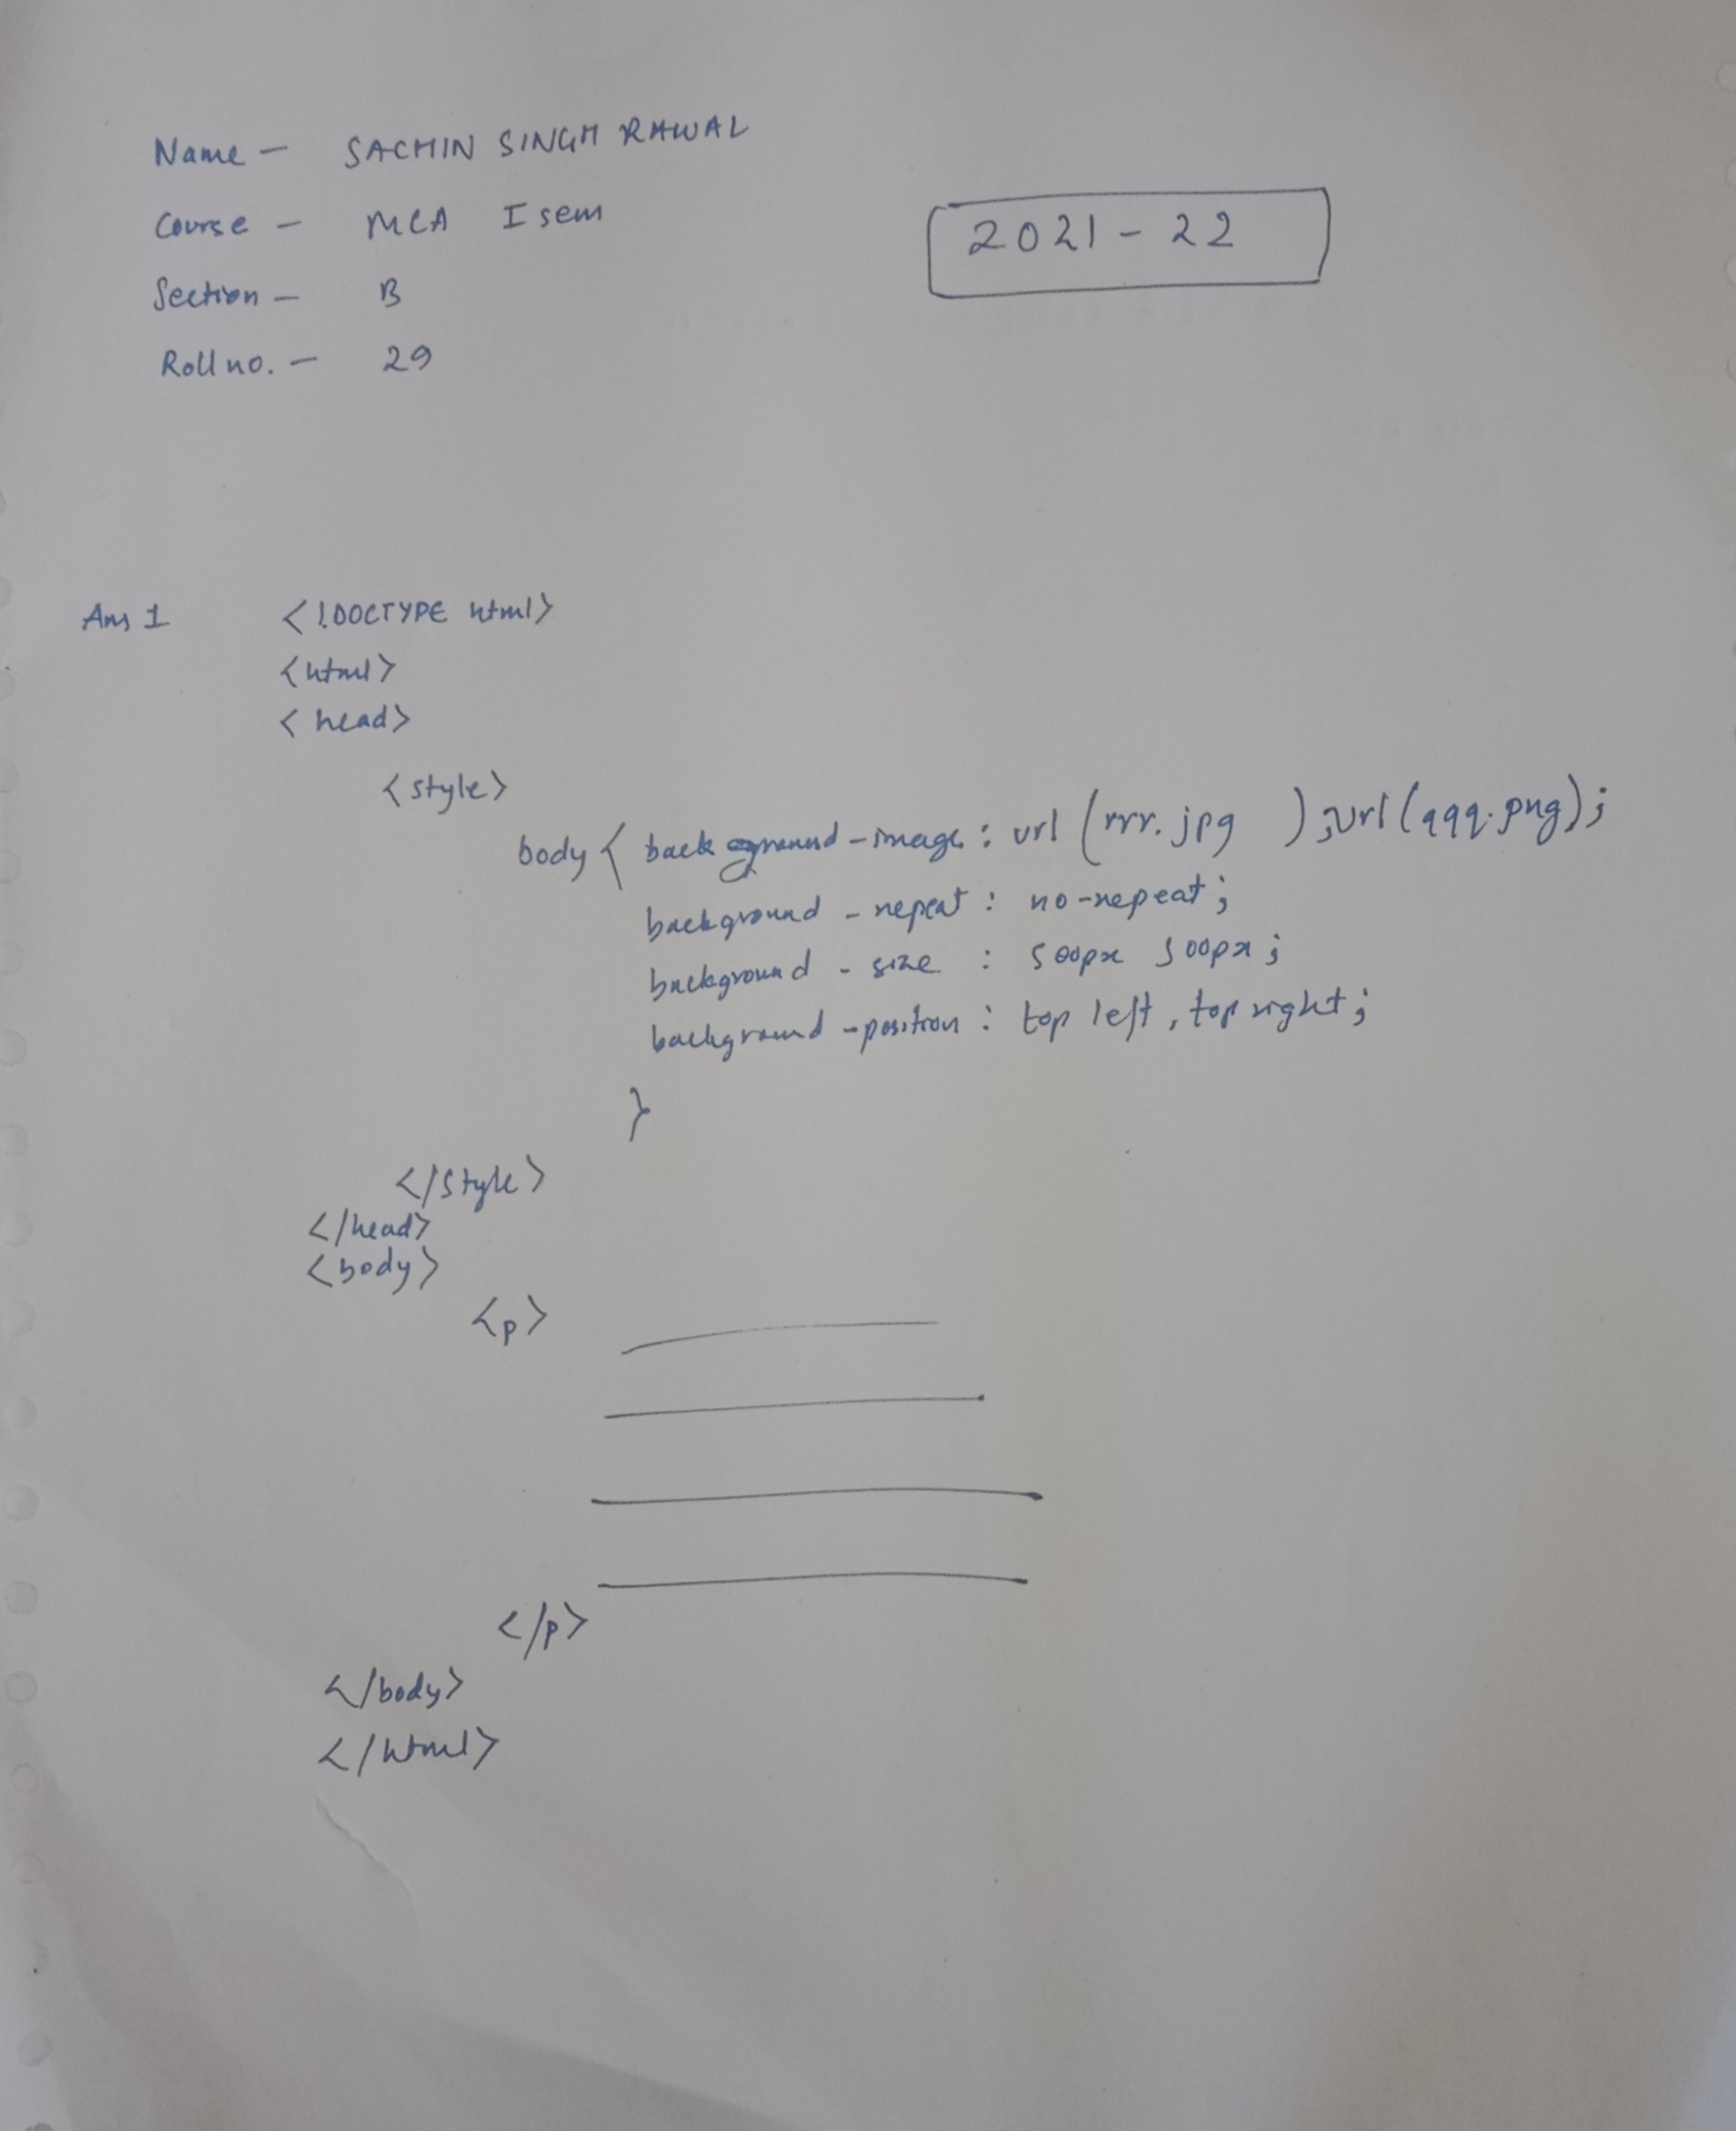 Name - SACHIN SINGH RAWAL
Course - MCA I sem
2021 - 22
Section - B
Roll no. - 29
Ans 1 <!DOCTYPE html>
<html>
<head>
<style>
body { background-image : url (rrr.jpg );url(qqq.png);
background - repeat : no-repeat ;
background - size : 500px 500px ;
background -position : top left , top right ;
}
</style>
</head>
<body>
<p>
</p>
</body>
</html>